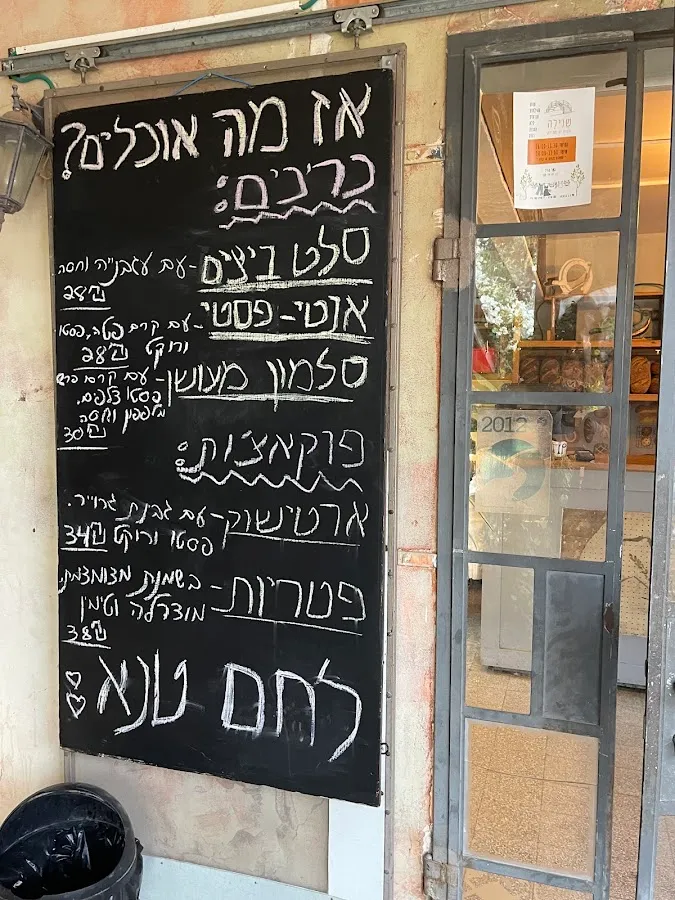 אז מה אוכלים?
כריכים:
סלט ביצים - עם עגבנייה וחסה
28₪
אנטי-פסטי - עם קרם פטה, פסטו
ורוקט 28₪
סלמון מעושן - עם קרם פרש
פסטו צלפים,
מלפפון וחסה
30₪
פוקאצ'ות:
ארטישוק - עם גבנת גרוייר,
פסטו ורוקט 34₪
פטריות - בשמנת מצומצמת,
מוצרלה וטימין
38₪
לחם טנא
2012